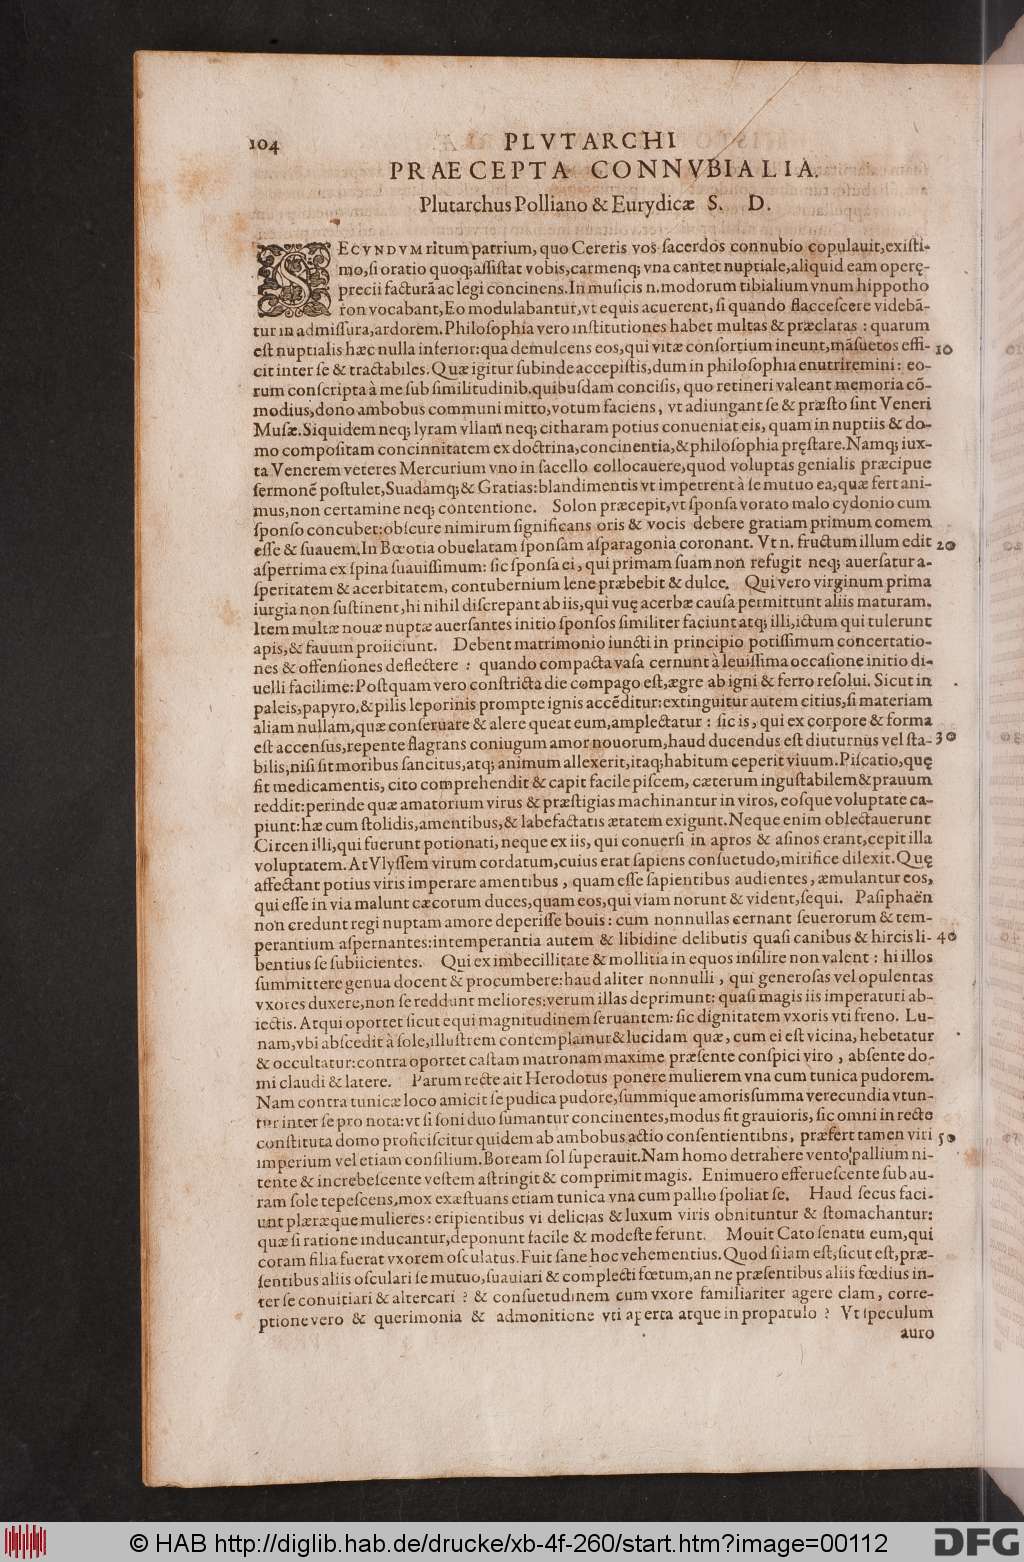 104
PLVTARCHI
PRAECEPTA CONNVBIALIA.
Plutarchus Polliano & Eurydicæ S. D.
SECVNDVM ritum patrium, quo Cereris vos sacerdos connubio copulauit, existi-
mo, si oratio quoq; assistat vobis, carmenq; vna cantet nuptiale, aliquid eam operę-
precii facturã ac legi concinens. In musicis n. modorum tibialium vnum hippotho
ron vocabant, Eo modulabantur, vt equis acuerent, si quando flaccescere videbã-
tur in admissura, ardorem. Philosophia vero institutiones habet multas & præclaras : quarum
est nuptialis hæc nulla inferior: qua demulcens eos, qui vitæ consortium ineunt, mãsuetos effi- 10
cit inter se & tractabiles. Quæ igitur subinde accepistis, dum in philosophia enutriremini: eo-
rum conscripta à me sub similitudinib. quibusdam concisis, quo retineri valeant memoria cõ-
modius, dono ambobus communi mitto, votum faciens, vt adiungant se & præsto sint Veneri
Musæ. Siquidem neq; lyram vllam neq; citharam potius conueniat eis, quam in nuptiis & do-
mo compositam concinnitatem ex doctrina, concinentia, & philosophia pręstare. Namq; iux-
ta Venerem veteres Mercurium vno in sacello collocauere, quod voluptas genialis præcipue
sermonẽ postulet, Suadamq; & Gratias: blandimentis vt impetrent à se mutuo ea, quæ fert ani-
mus, non certamine neq; contentione. Solon præcepit, vt sponsa vorato malo cydonio cum
sponso concubet: obscure nimirum significans oris & vocis debere gratiam primum comem
esse & suauem. In Bœotia obuelatam sponsam asparagonia coronant. Vt n. fructum illum edit 20
asperrima ex spina suauissimum: sic sponsa ei, qui primam suam non refugit neq; auersatur a-
speritatem & acerbitatem, contubernium lene præbebit & dulce. Qui vero virginum prima
iurgia non sustinent, hi nihil discrepant ab iis, qui vuę acerbæ causa permittunt aliis maturam.
Item multæ nouæ nuptæ auersantes initio sponsos similiter faciunt atq; illi, ictum qui tulerunt
apis, & fauum proiiciunt. Debent matrimonio iuncti in principio potissimum concertatio-
nes & offensiones deflectere : quando compacta vasa cernunt à leuissima occasione initio di-
uelli facilime: Postquam vero constricta die compago est, ægre ab igni & ferro resolui. Sicut in
paleis, papyro, & pilis leporinis prompte ignis accẽditur: extinguitur autem citius, si materiam
aliam nullam, quæ conseruare & alere queat eum, amplectatur : sic is, qui ex corpore & forma
est accensus, repente flagrans coniugum amor nouorum, haud ducendus est diuturnus vel sta- 30
bilis, nisi sit moribus sancitus, atq; animum allexerit, itaq; habitum ceperit viuum. Piscatio, quę
fit medicamentis, cito comprehendit & capit facile piscem, cæterum ingustabilem & prauum
reddit: perinde quæ amatorium virus & præstigias machinantur in viros, eosque voluptate ca-
piunt: hæ cum stolidis, amentibus, & labefactatis ætatem exigunt. Neque enim oblectauerunt
Circen illi, qui fuerunt potionati, neque ex iis, qui conuersi in apros & asinos erant, cepit illa
voluptatem. At Vlyssem virum cordatum, cuius erat sapiens consuetudo, mirifice dilexit. Quę
affectant potius viris imperare amentibus, quam esse sapientibus audientes, æmulantur eos,
qui esse in via malunt cæcorum duces, quam eos, qui viam norunt & vident, sequi. Pasiphaën
non credunt regi nuptam amore deperisse bouis : cum nonnullas cernant seuerorum & tem-
perantium aspernantes: intemperantia autem & libidine delibutis quasi canibus & hircis li- 40
bentius se subiicientes. Qui ex imbecillitate & mollitia in equos insilire non valent : hi illos
summittere genua docent & procumbere: haud aliter nonnulli, qui generosas vel opulentas
vxores duxere, non se reddunt meliores: verum illas deprimunt: quasi magis iis imperaturi ab-
iectis. Atqui oportet sicut equi magnitudinem seruantem: sic dignitatem vxoris vti freno. Lu-
nam, vbi abscedit à sole, illustrem contemplamur & lucidam quæ, cum ei est vicina, hebetatur
& occultatur: contra oportet castam matronam maxime præsente conspici viro, absente do-
mi claudi & latere. Parum recte ait Herodotus ponere mulierem vna cum tunica pudorem.
Nam contra tunicæ loco amicit se pudica pudore, summique amoris summa verecundia vtun-
tur inter se pro nota: vt si soni duo sumantur concinentes, modus fit grauioris, sic omni in recte
constituta domo proficiscitur quidem ab ambobus actio consentientibns, præfert tamen viri 50
imperium vel etiam consilium. Boream sol superauit. Nam homo detrahere vento pallium ni-
tente & increbescente vestem astringit & comprimit magis. Enimuero efferuescente sub au-
ram sole tepescens, mox exæstuans etiam tunica vna cum pallio spoliat se. Haud secus faci-
unt plæræque mulieres: eripientibus vi delicias & luxum viris obnituntur & stomachantur:
quæ si ratione inducantur, deponunt facile & modeste ferunt. Mouit Cato senatu eum, qui
coram filia fuerat vxorem osculatus. Fuit sane hoc vehementius. Quod si iam est, sicut est, præ-
sentibus aliis osculari se mutuo, suauiari & complecti fœtum, an ne præsentibus aliis fœdius in-
ter se conuitiari & altercari ? & consuetudinem cum vxore familiariter agere clam, corre-
ptione vero & querimonia & admonitione vti aperta atque in propatulo ? Vt speculum
auro
© HAB http://diglib.hab.de/drucke/xb-4f-260/start.htm?image=00112
DFG